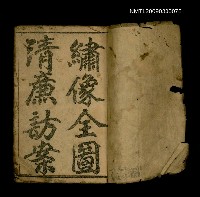 NMT120090300070
繡像全圖
清廉訪案